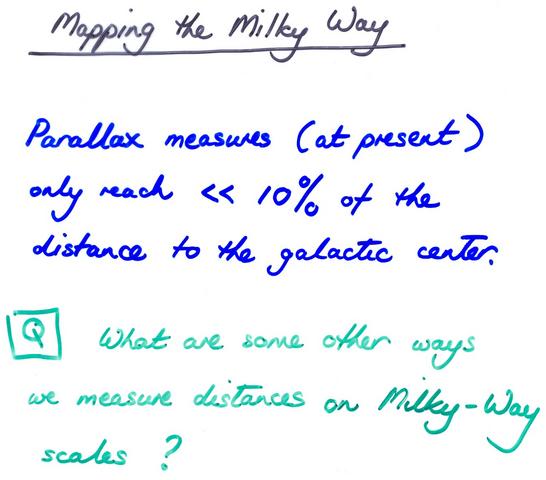 Mapping the Milky Way
Parallax measures (at present)
only reach << 10% of the
distance to the galactic center.
Q What are some other ways
we measure distances on Milky-Way
scales ?